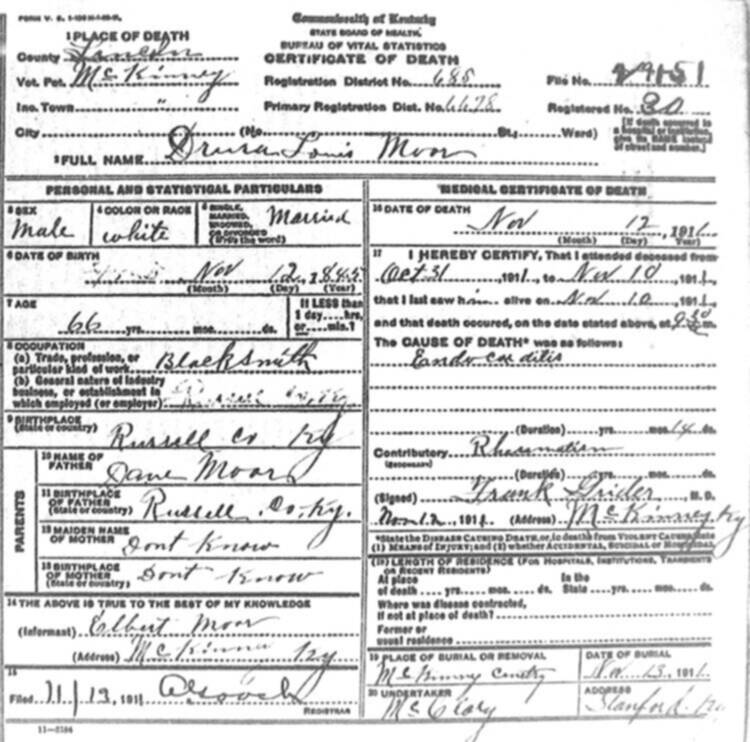 Commonwealth of Kentucky
STATE BOARD OF HEALTH
BUREAU OF VITAL STATISTICS
CERTIFICATE OF DEATH
1 PLACE OF DEATH
County Lincoln
Vot. Pct. McKinney
Registration District No. 685
File No. 29151
Inc. Town "
Primary Registration Dist. No. 6678
Registered No. 30
City (No. St.; Ward)
[If death occurred in a hospital or institution, give its NAME instead of street and number.]
2 FULL NAME Louis Moor
PERSONAL AND STATISTICAL PARTICULARS
3 SEX
Male
4 COLOR OR RACE
white
5 SINGLE, MARRIED, WIDOWED, OR DIVORCED (Write the word)
Married
6 DATE OF BIRTH
Nov 12, 1845
(Month) (Day) (Year)
7 AGE
66 yrs. mos. ds.
If LESS than 1 day....hrs. or....min.?
8 OCCUPATION
(a) Trade, profession, or particular kind of work Blacksmith
(b) General nature of industry business, or establishment in which employed (or employer)
9 BIRTHPLACE
(State or country)
Russell Co Ky
PARENTS
10 NAME OF FATHER
Dave Moor
11 BIRTHPLACE OF FATHER
(State or country)
Russell Co. Ky.
12 MAIDEN NAME OF MOTHER
Dont Know
13 BIRTHPLACE OF MOTHER
(State or country)
Dont Know
14 THE ABOVE IS TRUE TO THE BEST OF MY KNOWLEDGE
(Informant) Elbert Moor
(Address) McKinney Ky
15
Filed 11/13, 1911
REGISTRAR
MEDICAL CERTIFICATE OF DEATH
16 DATE OF DEATH
Nov 12, 1911
(Month) (Day) (Year)
17 I HEREBY CERTIFY, That I attended deceased from
Oct 31 1911, to Nov 10 1911,
that I last saw him alive on Nov 10 1911,
and that death occured, on the date stated above, at 9 30 m.
The CAUSE OF DEATH* was as follows:
Endocarditis
(Duration) yrs. mos. 14 ds.
Contributory Rheumatism
(SECONDARY)
(Duration) yrs. mos. ds.
(Signed) Frank Grider, M. D.
Nov. 12, 1911. (Address) McKinney Ky
*State the DISEASE CAUSING DEATH, or, in deaths from VIOLENT CAUSES state (1) MEANS OF INJURY; and (2) whether ACCIDENTAL, SUICIDAL or HOMICIDAL
(18) LENGTH OF RESIDENCE (FOR HOSPITALS, INSTITUTIONS, TRANSIENTS OR RECENT RESIDENTS.)
At place of death yrs. mos. ds. In the State yrs. mos. ds.
Where was disease contracted,
If not at place of death?
Former or usual residence
19 PLACE OF BURIAL OR REMOVAL
McKinney
DATE OF BURIAL
Nov. 13, 1911.
20 UNDERTAKER
McClary
ADDRESS
Stanford